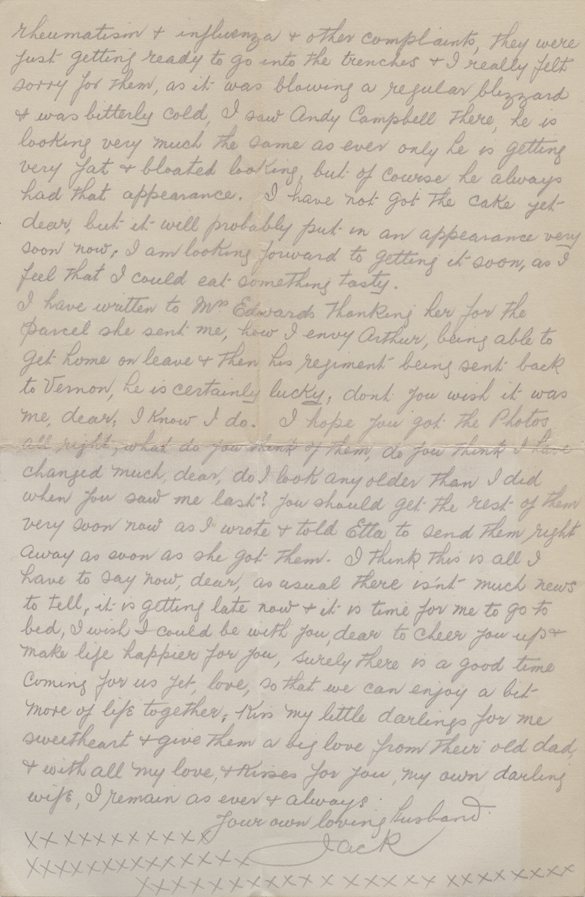 rheumatism & influenza & other complaints, they were
just getting ready to go into the trenches & I really felt
sorry for them, as it was blowing a regular blizzard
& was bitterly cold, I saw Andy Campbell there, he is
looking very much the same as ever only he is getting
very fat & bloated looking, but of course he always
had that appearance. I have not got the cake yet
dear, but it will probably put in an appearance very
soon now, I am looking forward to getting it soon, as I
feel that I could eat something tasty.
I have written to Mrs Edwards thanking her for the
parcel she sent me, how I envy Arthur, being able to
get home on leave & then his regiment being sent back
to Vernon, he is certainly lucky, dont you wish it was
me, dear, I know I do. I hope you got the Photos
all right, what do you think of them, do you think I have
changed much, dear, do I look any older than I did
when you saw me last? you should get the rest of them
very soon now as I wrote & told Etta to send them right
away as soon as she got them. I think this is all I
have to say now, dear, as usual there isn't much news
to tell, it is getting late now & it is time for me to go to
bed, I wish I could be with you, dear to cheer you up &
make life happier for you, surely there is a good time
coming for us yet, love, so that we can enjoy a bit
more of life together, Kiss my little darlings for me
sweetheart & give them a big love from their old dad,
& with all my love, & kisses for you, my own darling
wife, I remain as ever & always
Your own loving husband
Jack
XXXXXXXXXXX
XXXXXXXXXXXXXX
XXXXXXXXXXXXXXXXXXXXXXXX